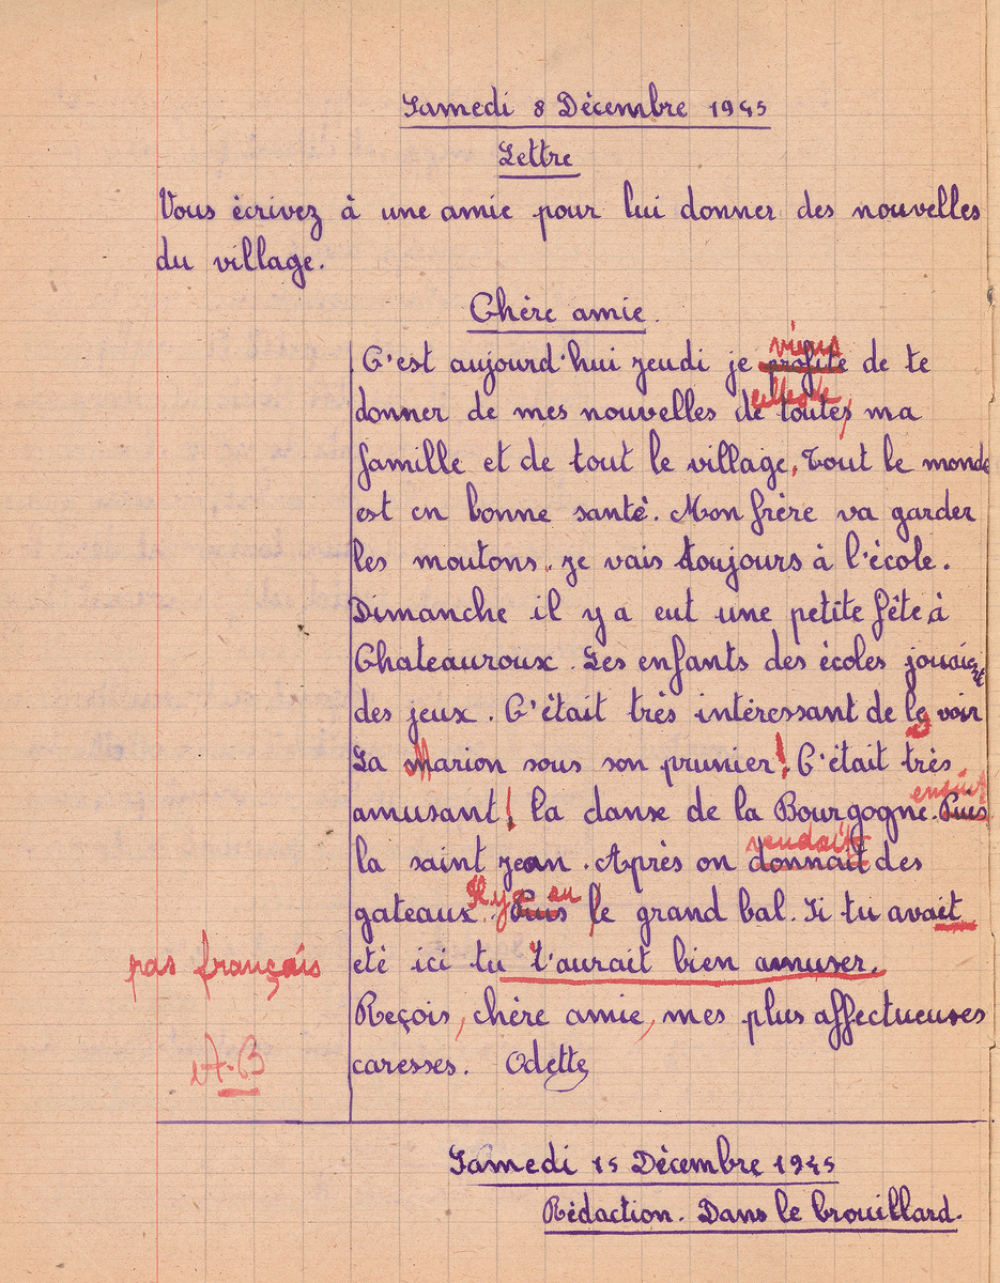 Samedi 8 Décembre 1945
Lettre
Vous écrivez à une amie pour lui donner des nouvelles
du village.
Chère amie.
viens
C'est aujourd'hui jeudi je profite de te
celles de
donner de mes nouvelles de toutes, ma
famille et de tout le village, Tout le monde
est en bonne santé. Mon frère va garder
les moutons. je vais toujours à l'école.
Dimanche il y a eut une petite fête à
Chateauroux. Les enfants des écoles jouaient
des jeux. C'était très intéressant de les voir
La Marion sous son prunier! C'était très
ensuite
amusant! la danse de la Bourgogne. Puis
vendait
la saint jean. Après on donnait des
Il y a eu
gateaux. Puis le grand bal. Si tu avait
pas français
eté ici tu t'aurait bien amuser.
Reçois, chère amie, mes plus affectueuses
A-B
caresses. Odette
Samedi 15 Décembre 1945
Rédaction. Dans le brouillard.